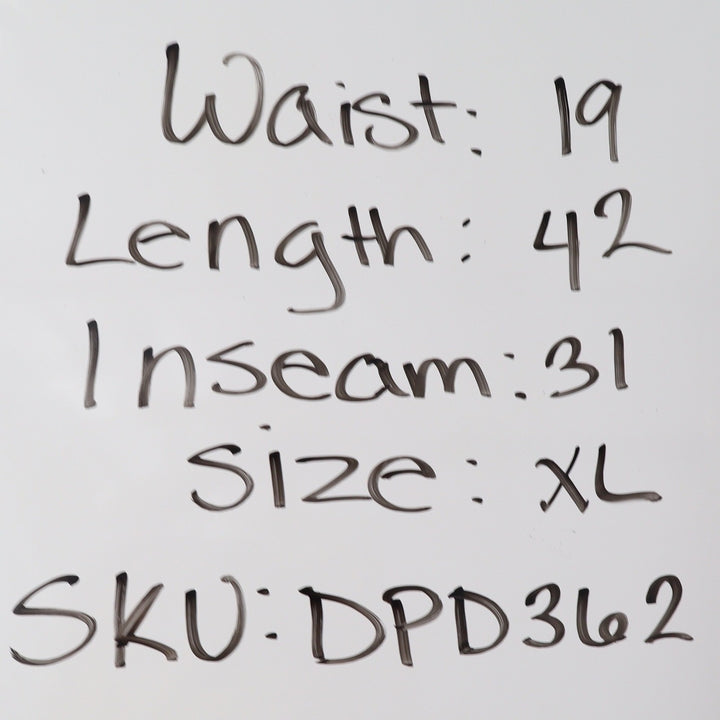 Waist: 19
Length: 42
Inseam: 31
Size: XL
SKU: DPD362